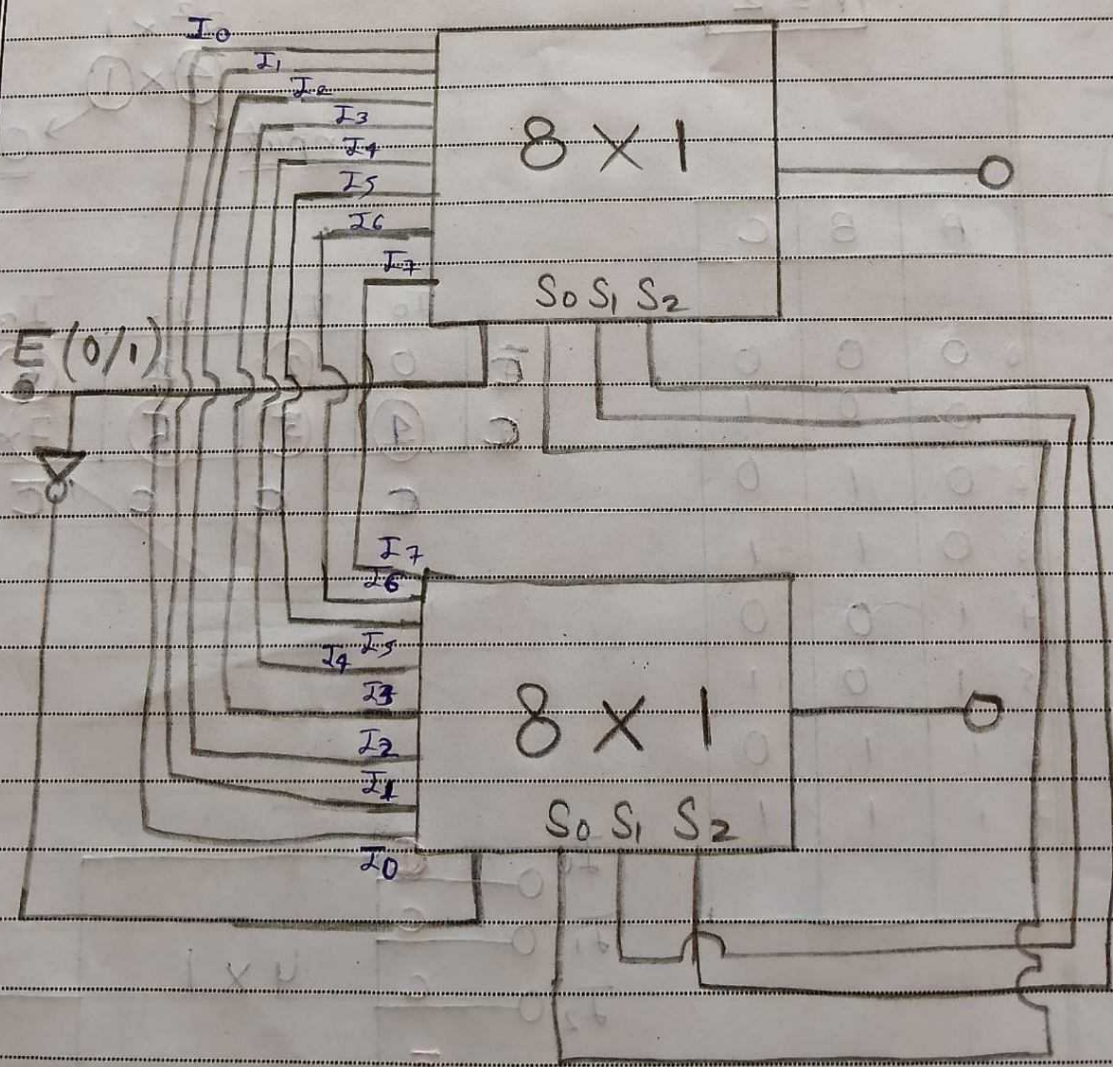 I0
I1
I2
I3
I4
I5
I6
I7
8 X 1
S0 S1 S2
E (0/1)
I7
I6
I5
I4
I3
I2
I1
I0
8 X 1
S0 S1 S2